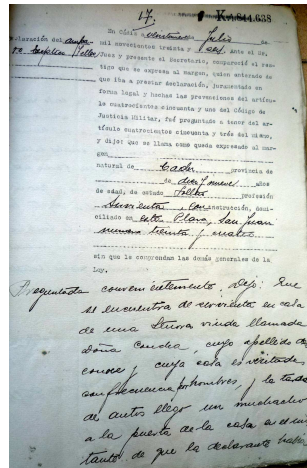 17.
K.1.844.638
En Cádiz a
Julio de
mil novecientos treinta y seis. Ante el Sr.
Juez y presente el Secretario, compareció el tes-
tigo que se expresa al margen, quien enterado de
que iba a prestar declaración, juramentado en
forma legal y hechas las prevenciones del artícu-
lo cuatrocientos cincuenta y uno del Código de
Justicia Militar, fué preguntado a tenor del ar-
tículo cuatrocientos cincuenta y tres del mismo,
y dijo: que se llama como queda expresado al mar-
gen
natural de Cadiz provincia de
de diez y nueve años
de edad, de estado soltera profesión
Sirvienta con instrucción, domi-
ciliado en esta Plaza, San Juan
numero treinta y cuatro
sin que le comprendan las demás generales de la
Ley.
Preguntada convenientemente, Dijo: Que
se encuentra de sirvienta en casa
de una Señora viuda llamada
doña Concha, cuyo apellido no
conoce y cuya casa es visitada
con frecuencia por hombres y la tarde
de autos llego un muchacho
a la puerta de la casa
de que la declarante